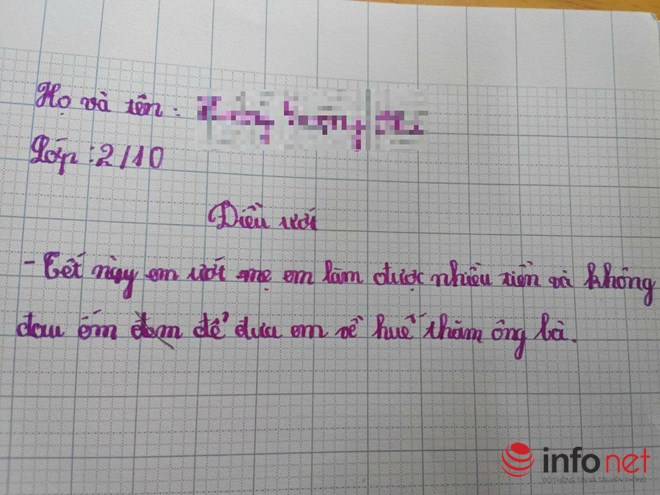 Họ và tên:
Lớp: 2/10
Điều ước
- Tết này em ước mẹ em làm được nhiều tiền và không
đau ốm đem để đưa em về huế thăm ông bà.
infonet